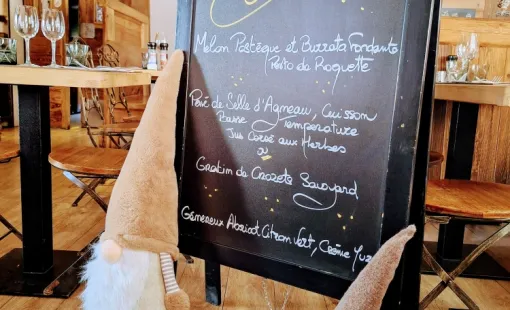 Melon Pastèque et Burrata Fondante
Pesto de Roquette
de Selle d'Agneau, Cuisson
Basse Température
Jus Corsé aux Herbes
ou
Gratin de Crozets Savoyard
Généreux Abricot Citron Vert, Crème Yuzu